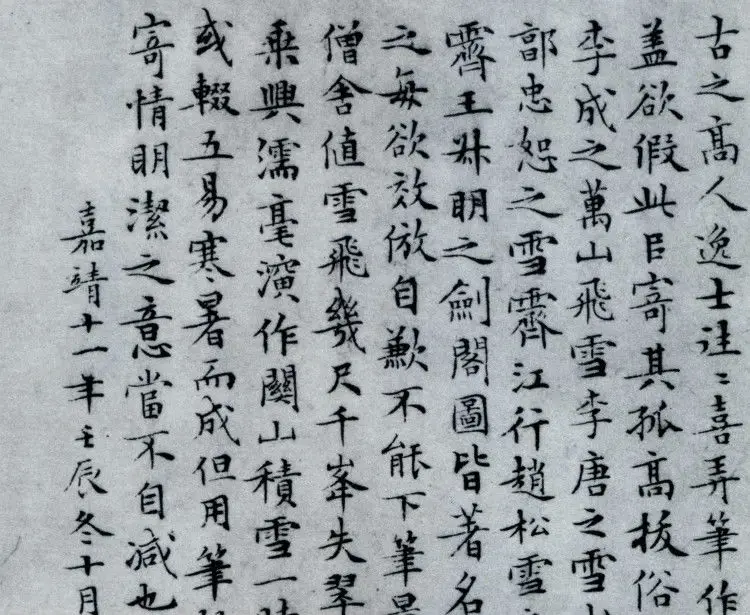 古之高人逸士往〻喜弄筆作
蓋欲假此㠯寄其孤高拔俗
李成之萬山飛雪李唐之雪山
郭忠恕之雪霽江行趙松雪
霽王叔明之劍閣圖皆著名
之每欲效倣自歉不能下筆
僧舍值雪飛幾尺千峯失翠
乘興濡毫演作關山積雪一
或輟五易寒暑而成但用筆
寄情明潔之意當不自減也
嘉靖十一年壬辰冬十月